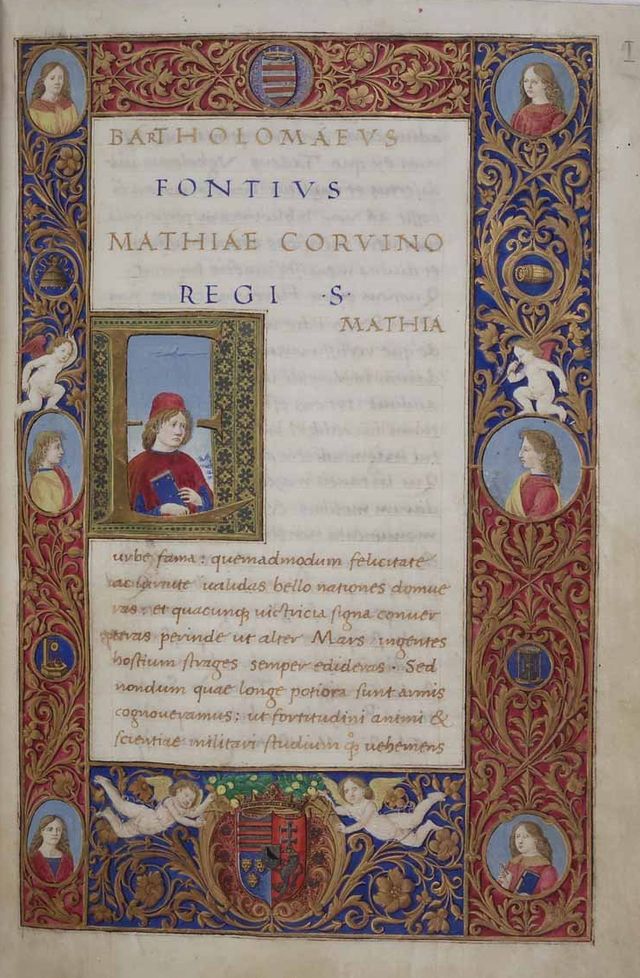 BARTHOLOMAEVS
FONTIVS
MATHIAE CORVINO
REGI ·S·
MATHIA
urbe fama: quemadmodum felicitate
ac uirtute ualidas bello nationes domue
ras: et quacunq; uictricia signa conuer
teras perinde ut alter Mars ingentes
hostium strages semper edideras. Sed
nondum quae longe potiora sunt armis
cognoueramus: ut fortitudini animi &
scientiae militari studium q; uehemens
I